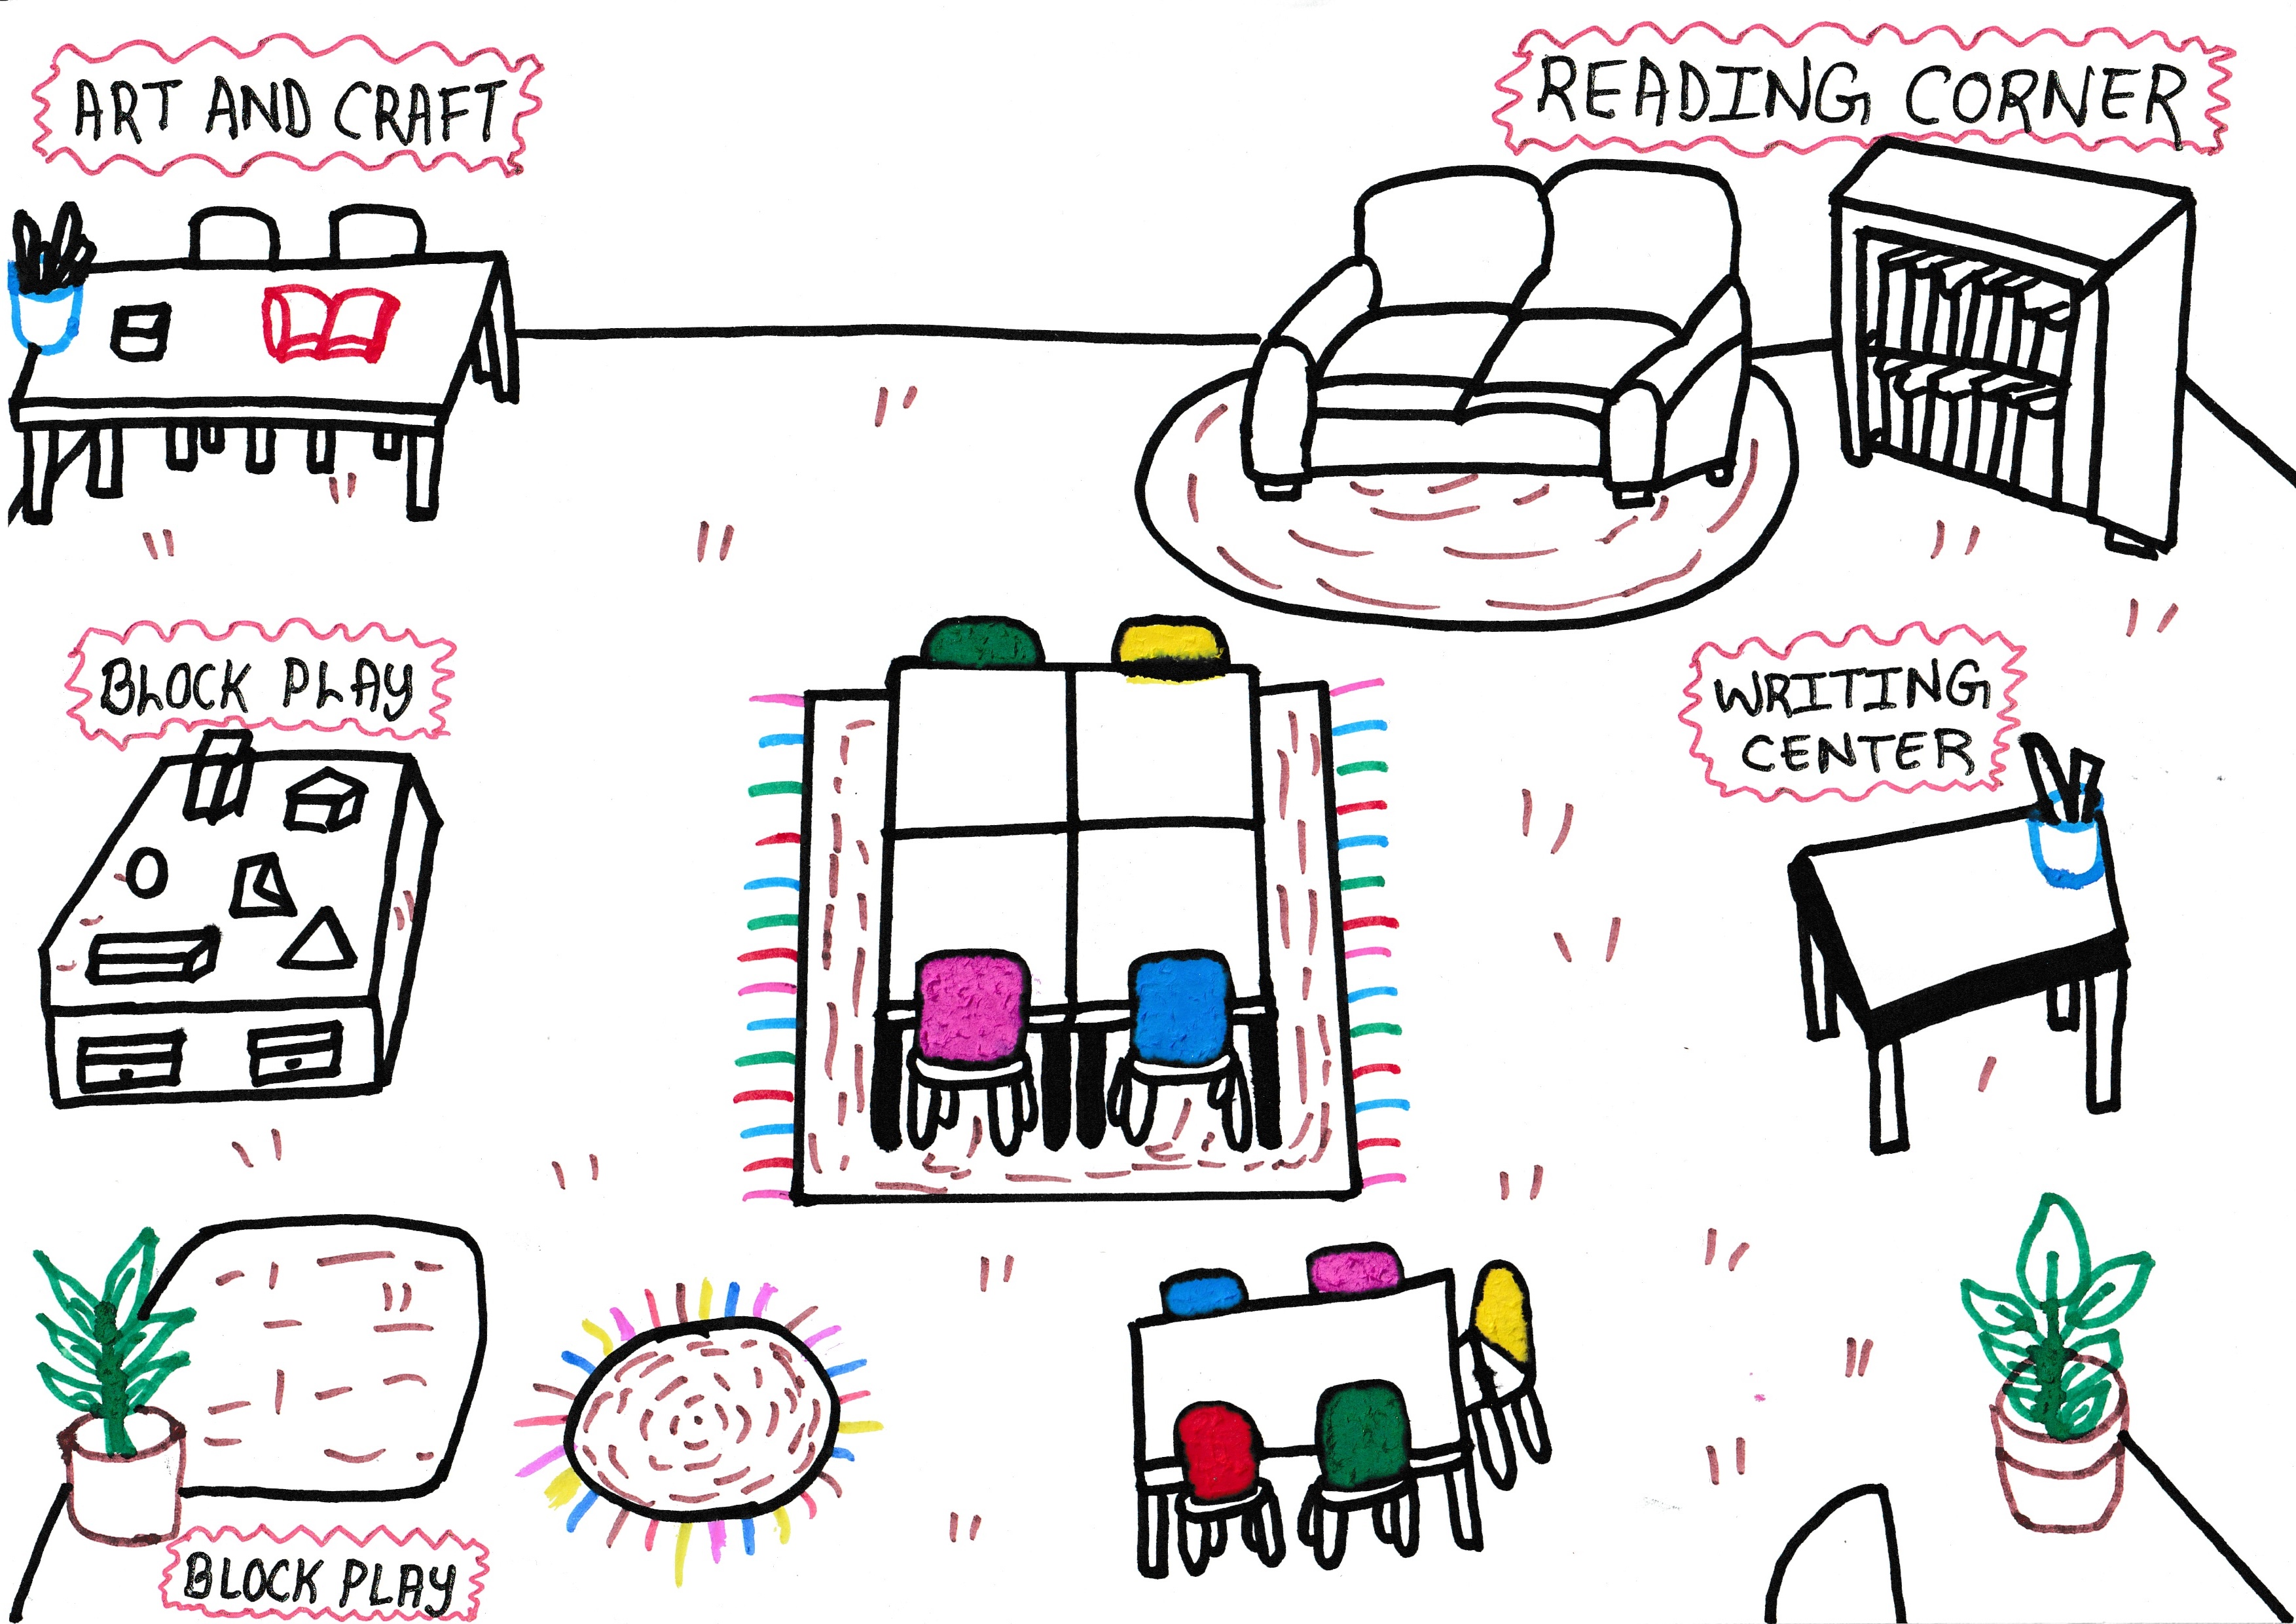 ART AND CRAFT
READING CORNER
BLOCK PLAY
WRITING
CENTER
BLOCK PLAY